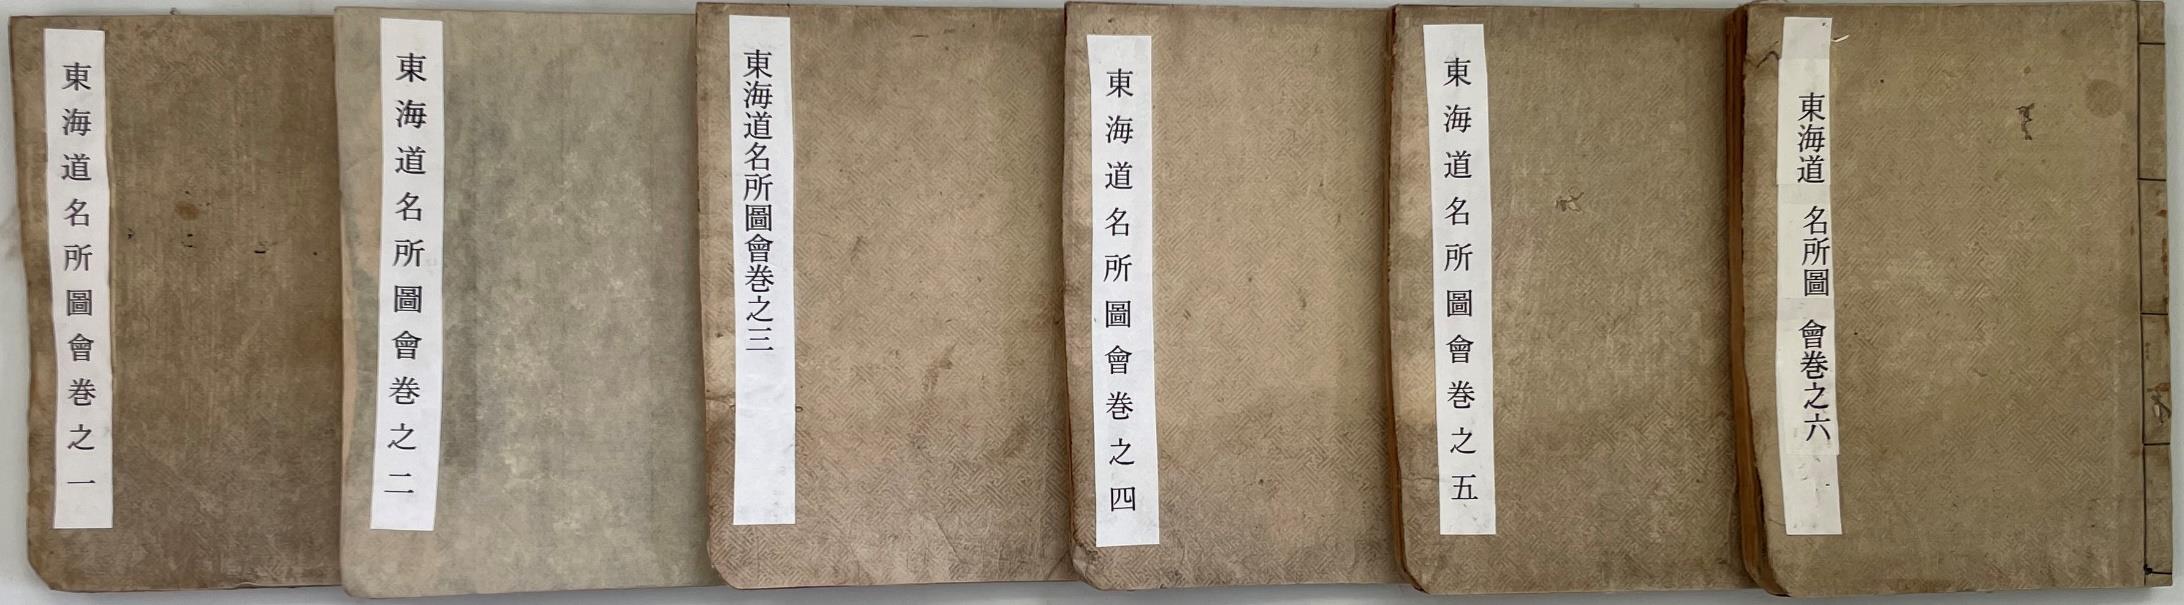 東海道名所圖會巻之一
東海道名所圖會巻之二
東海道名所圖會巻之三
東海道名所圖會巻之四
東海道名所圖會巻之五
東海道名所圖會巻之六